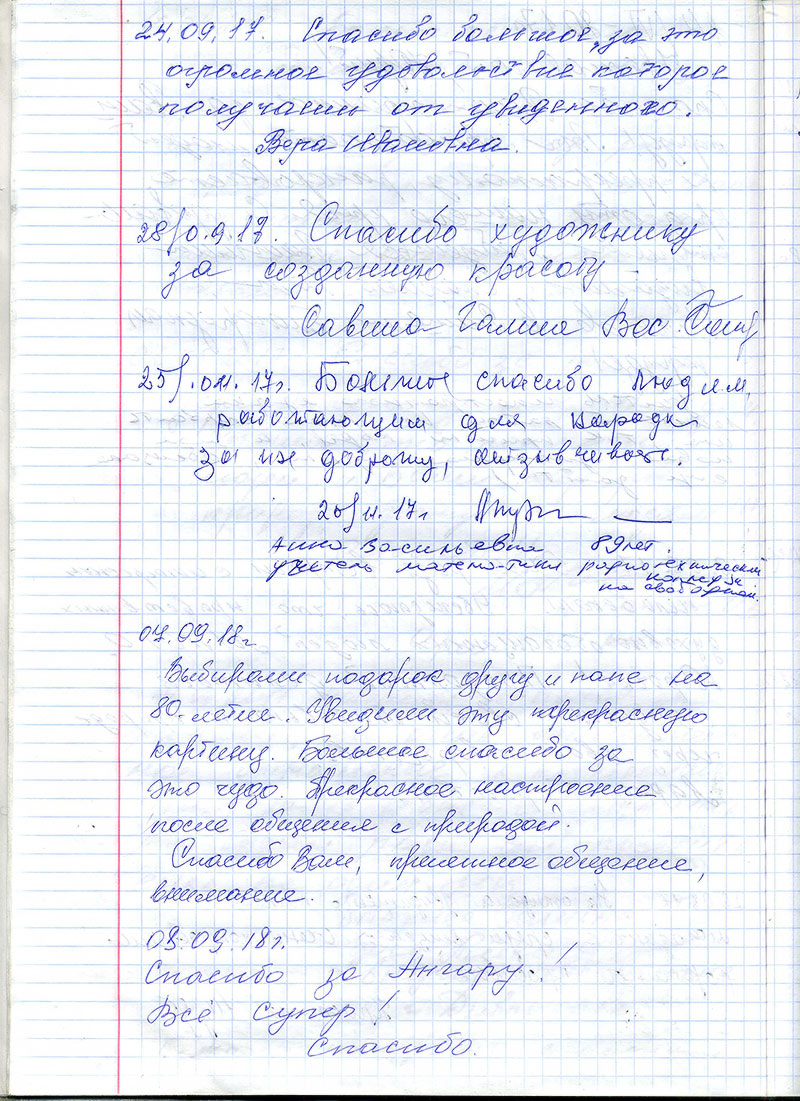 24.09.17. Спасибо большое, за это
огромное удовольствие которое
получаем от увиденного.
Вера Ивановна.
28/0.9.17. Спасибо художнику
за созданную красоту
Савина Галина Вос.
25/.он.17г. Большое спасибо людям,
работающим для народа
за их доброту, отзывчивость.
20/н.17г
Анна Васильевна 89 лет.
учитель математики радиотехнический
колледж
на свободном.
07.09.18г
Выбирали подарок другу и папе на
80-летие. Увидели эту прекрасную
картину. Большое спасибо за
это чудо. Прекрасное настроение
после общения с природой.
Спасибо Вам, приятное общение,
внимание.
08.09.18г.
Спасибо за Ангару!
Всё супер!
Спасибо.